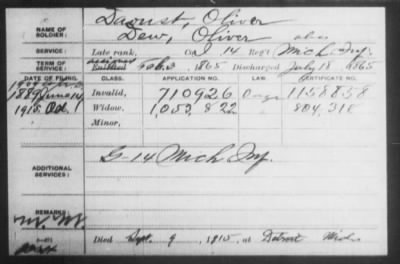 NAME OF SOLDIER: Daoust, Oliver
Dew, Oliver alias
SERVICE: Late rank, Co. I 14 Reg't Mich Inf.
TERM OF SERVICE: Enlisted Feb. 3, 1865 Discharged July 18 1865
DATE OF FILING. CLASS. APPLICATION NO. LAW. CERTIFICATE NO.
1889 June 14 Invalid, 710926 1158858
1915 Oct Widow, 1,053,822 804,318
Minor,
ADDITIONAL SERVICES: G-14 Mich Inf.
REMARKS:
Died Sept. 9, 1915, at Detroit Mich